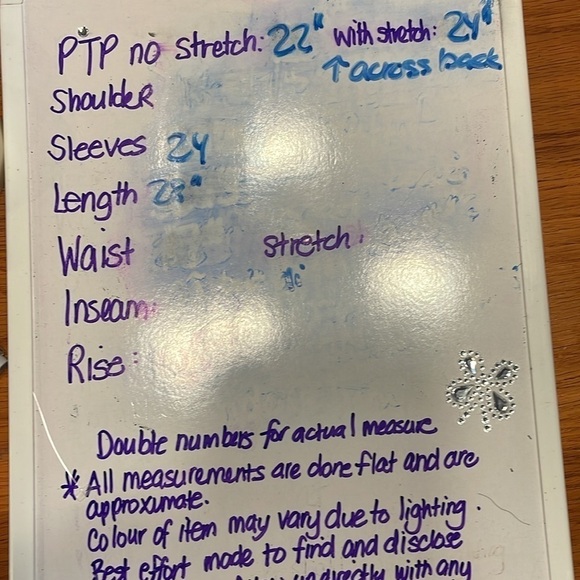 PTP no stretch: 22" with stretch: 24"
↑ across back
Shoulder
Sleeves 24
Length 28"
Waist stretch:
Inseam:
Rise:
Double numbers for actual measure
* All measurements are done flat and are
approximate.
Colour of item may vary due to lighting.
Best effort made to find and disclose
directly with any